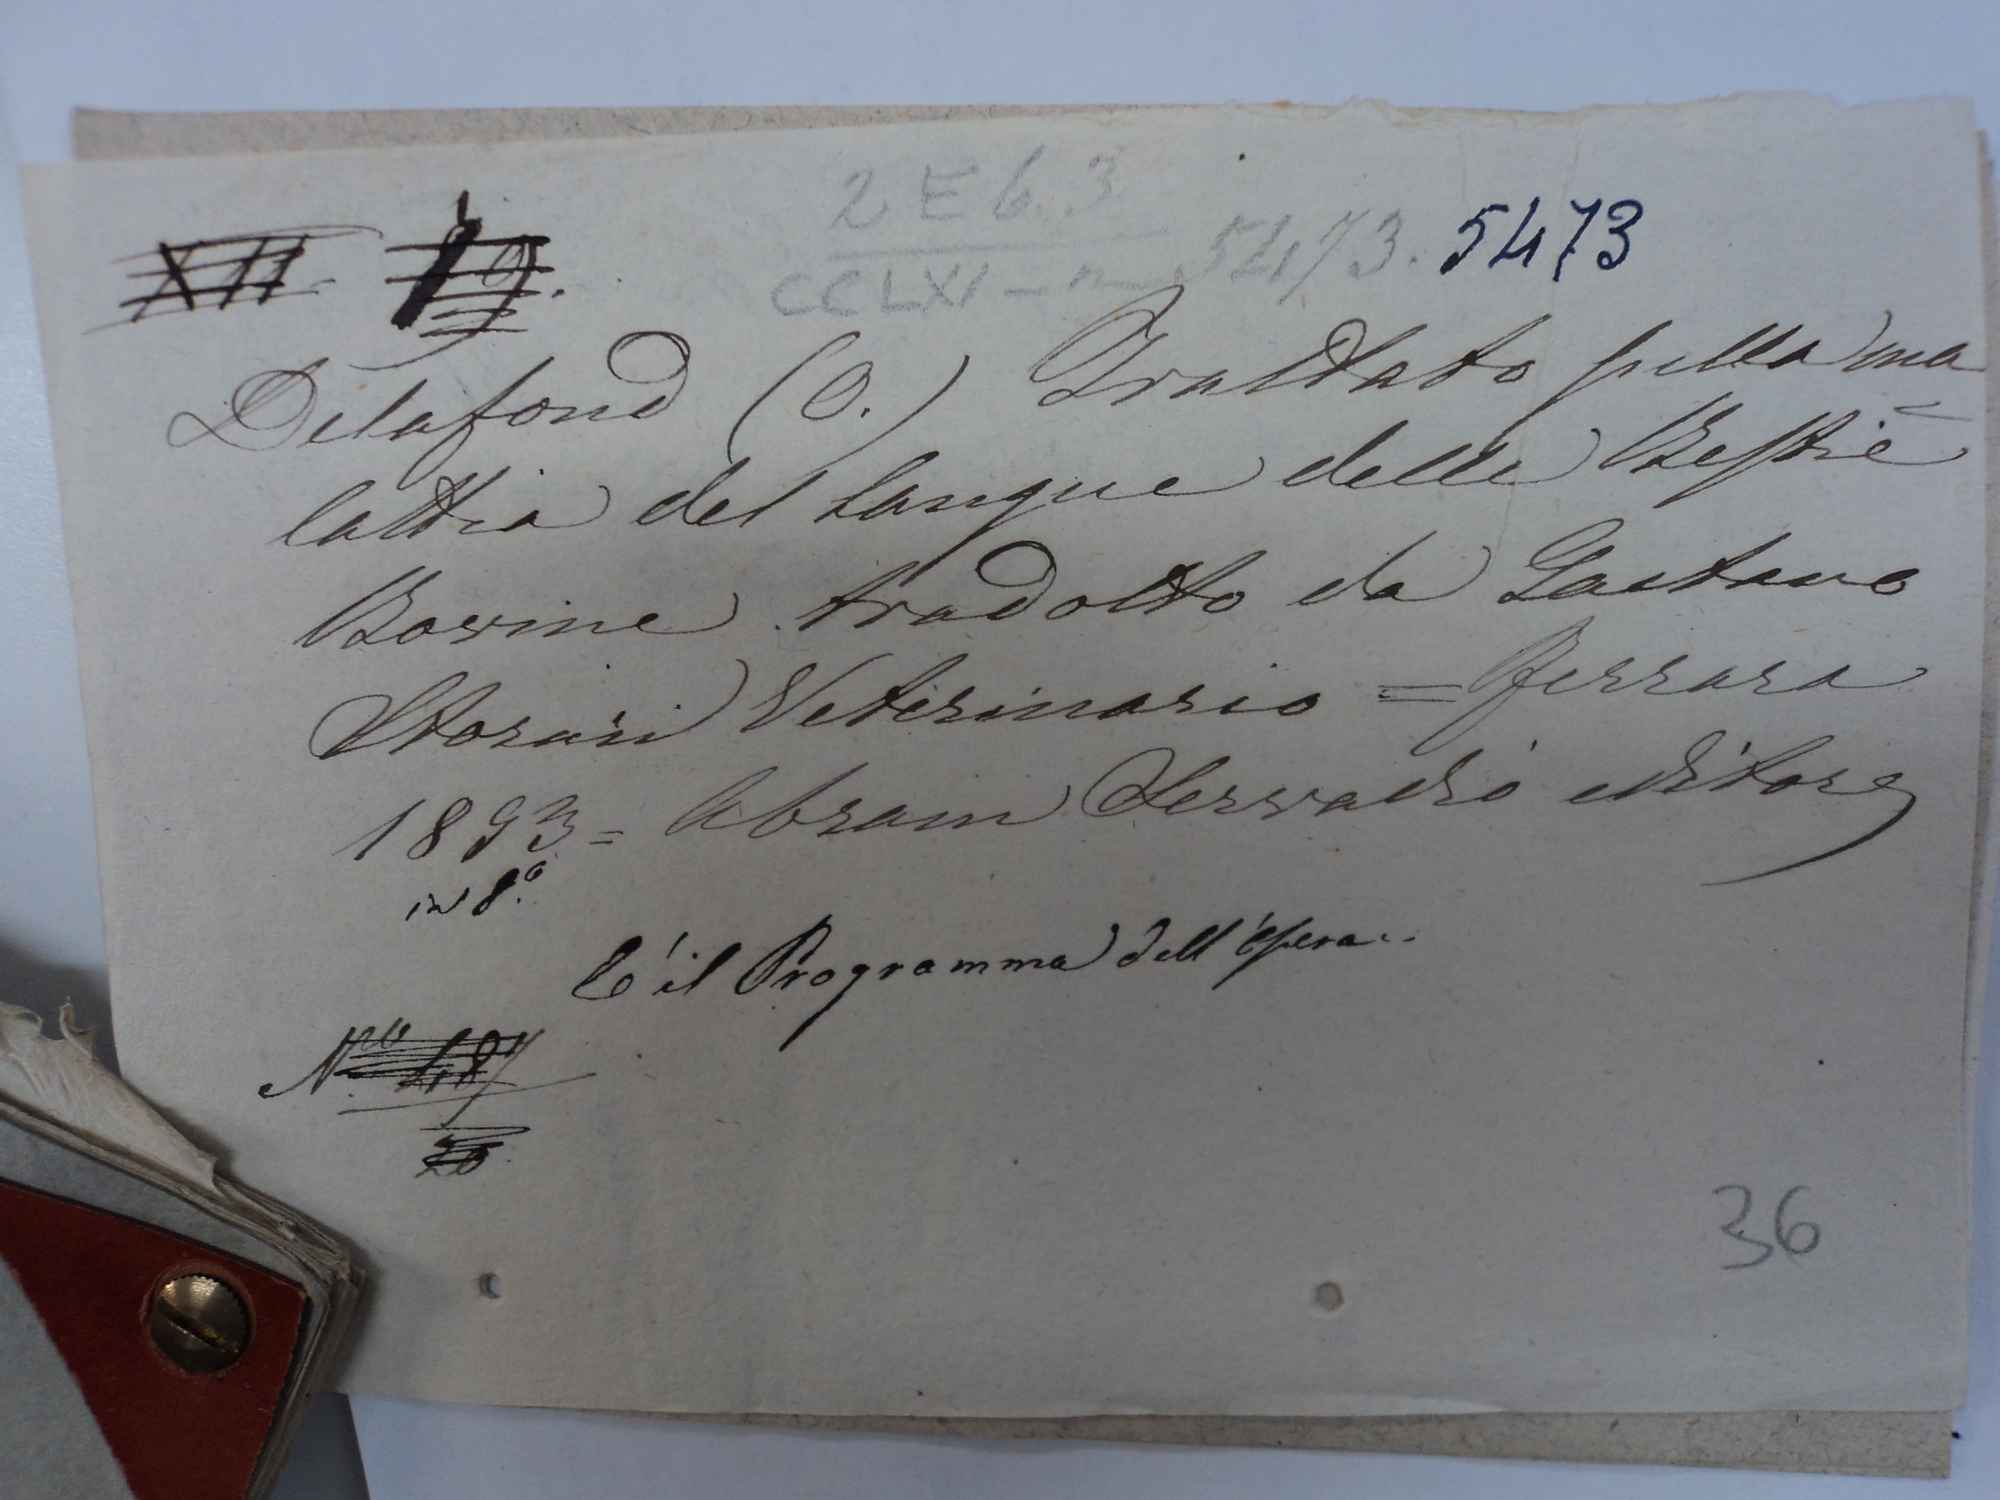 2 E 6. 3
XII - 19.
CCLXI - 5473. 5473
Delafond (O.) Trattato sulla ma
lattia del sangue delle Bestie
Bovine tradotto da Gaetano
Storari Veterinario = Ferrara
1893 = Abram Servadio editore
in 8.º
È il Programma dell'opera..
Nro 487
36